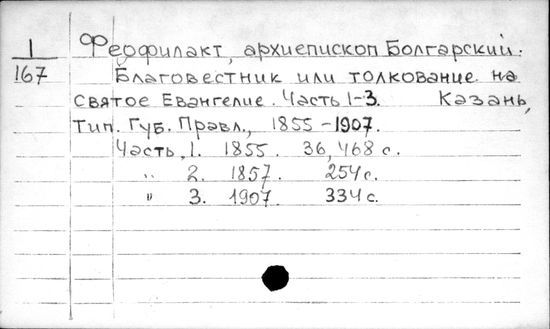 1
167
Феофилакт, архиепископ Болгарский.
Благовестник или толкование на
святое Евангелие. Часть 1-3. Казань,
Тип. Губ. Правл., 1855-1907.
Часть 1. 1855. 36, 468 с.
" 2. 1857. 254 с.
" 3. 1907. 334 с.